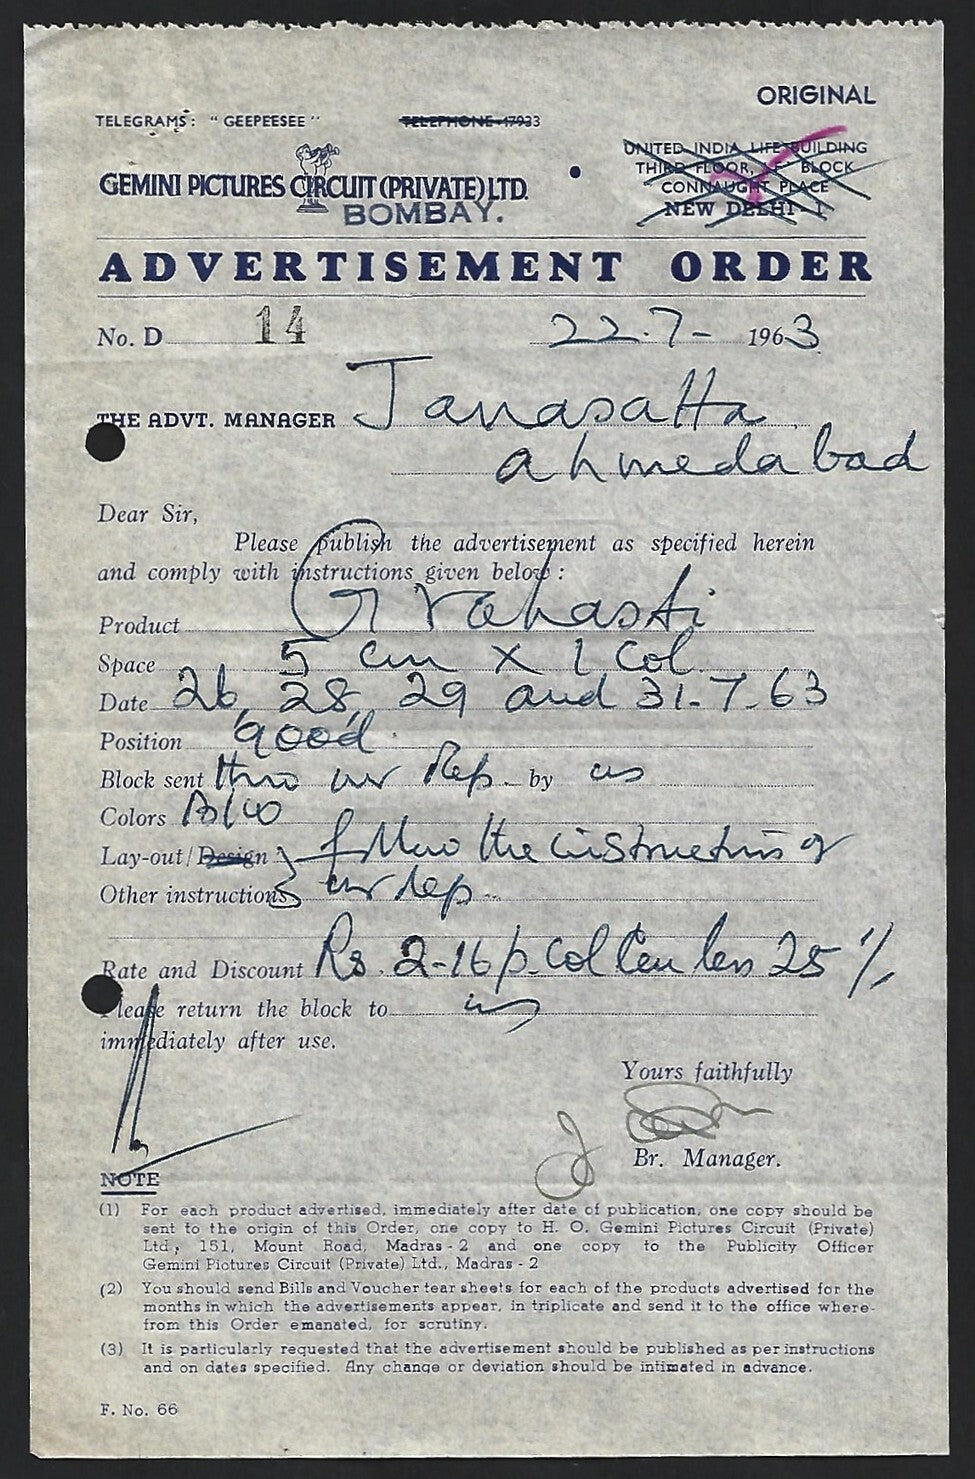 ORIGINAL
TELEGRAMS: "GEEPEESEE" TELEPHONE-47933
UNITED INDIA LIFE BUILDING
THIRD FLOOR, 'F' BLOCK
CONNAUGHT PLACE
NEW DELHI-1.
GEMINI PICTURES CIRCUIT (PRIVATE) LTD.
BOMBAY.
ADVERTISEMENT ORDER
No. D 14 22.7- 1963
THE ADVT. MANAGER Janasatta
ahmedabad
Dear Sir,
Please publish the advertisement as specified herein
and comply with instructions given below:
Product Grahasti
Space 5 cm x 1 Col.
Date 26, 28, 29 and 31.7.63
Position good.
Block sent thro our Rep. by us
Colors B/W
Lay-out/Design } follow the instructions of
Other instructions } our rep.
Rate and Discount Rs. 2-16 p. col cm less 25 %
Please return the block to us
immediately after use.
Yours faithfully
Br. Manager.
NOTE
(1) For each product advertised, immediately after date of publication, one copy should be
sent to the origin of this Order, one copy to H. O. Gemini Pictures Circuit (Private)
Ltd, 151, Mount Road, Madras-2 and one copy to the Publicity Officer
Gemini Pictures Circuit (Private) Ltd., Madras-2
(2) You should send Bills and Voucher tear sheets for each of the products advertised for the
months in which the advertisements appear, in triplicate and send it to the office where-
from this Order emanated, for scrutiny.
(3) It is particularly requested that the advertisement should be published as per instructions
and on dates specified. Any change or deviation should be intimated in advance.
F. No. 66